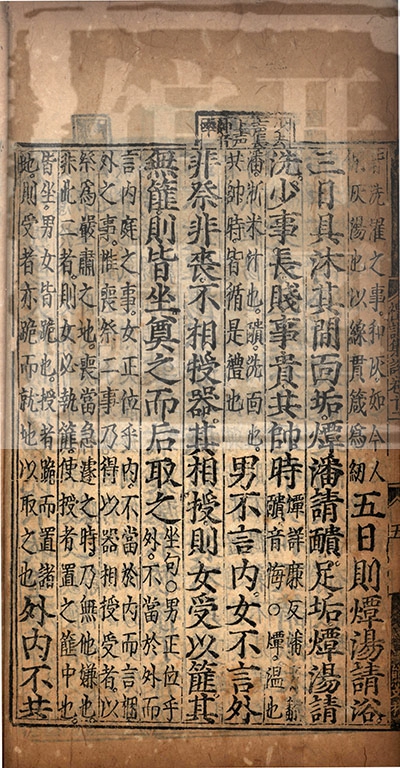 洗濯之事和灰如今人
灰湯也以線貫箴為紉
五日則燂湯請浴
三日具沐其間面垢燂潘請靧足垢燂湯請
洗少事長賤事貴共帥時
燂詳廉反潘
靧音悔○燂温也
潘淅米汁也靧洗面也
共帥時皆循是禮也
男不言内女不言外
非祭非喪不相授器其相授則女受以篚其
無篚則皆坐奠之而后取之
坐句○男正位乎
外不當於外而
言内庭之事女正位乎内不當於内而言閫
外之事惟喪祭二事乃得以器相授受者以
祭為嚴肅之地喪當急遽之時乃無他嫌也
非此二者則女必執篚使授者置之篚中也
皆坐男女皆跪也授者跪而置諸
地則受者亦跪而就地以取之也
外内不共
五